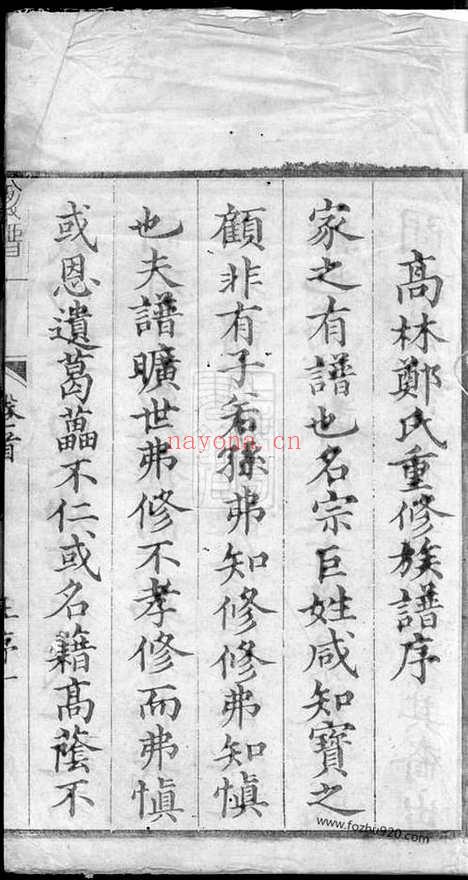 高林鄭氏重修族譜序
家之有譜也名宗巨姓咸知寶之
顧非有子若孫弗知修修弗知慎
也夫譜曠世弗修不孝修而弗慎
或恩遺葛藟不仁或名籍高蔭不
卷首
nayona.cn
www.fozhu920.com